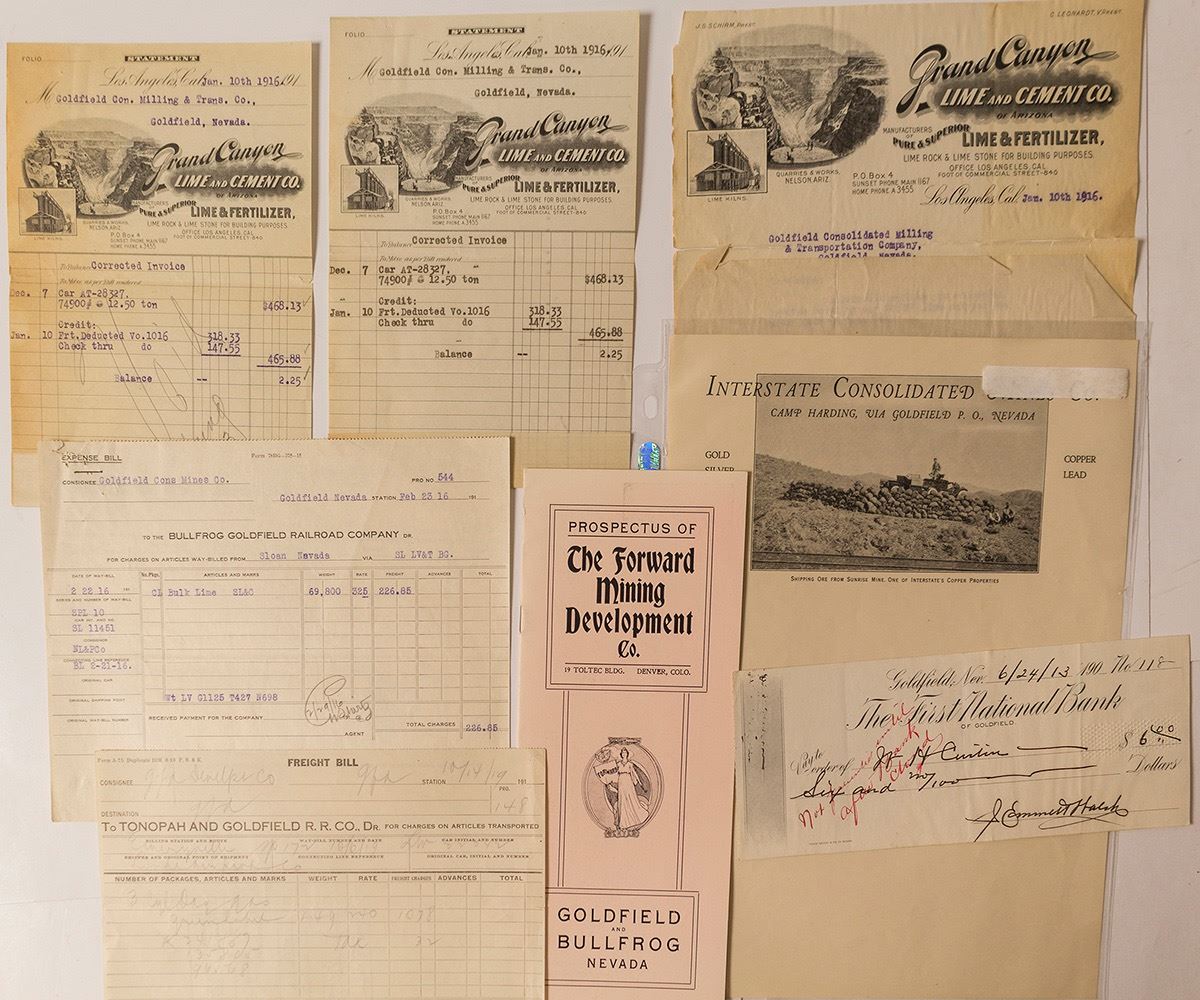 FOLIO
STATEMENT
Los Angeles, Cal. Jan. 10th 1916, 191
M Goldfield Con. Milling & Trans. Co.,
Goldfield, Nevada.
Grand Canyon
LIME AND CEMENT CO.
OF ARIZONA
MANUFACTURERS OF
PURE & SUPERIOR LIME & FERTILIZER,
LIME ROCK & LIME STONE FOR BUILDING PURPOSES.
QUARRIES & WORKS,
NELSON, ARIZ.
LIME KILNS.
OFFICE LOS ANGELES, CAL.
FOOT OF COMMERCIAL STREET-840
P.O. Box 4
SUNSET PHONE MAIN 1167
HOME PHONE A 3455
To Balance Corrected Invoice
To Mdse as per Bill rendered
Dec. 7 Car AT-28327,
74900# @ 12.50 ton $468.13
Credit:
Jan. 10 Frt.Deducted Vo.1016 318.33
Check thru do 147.55
465.88
Balance -- 2.25
FOLIO
STATEMENT
Los Angeles, Cal. Jan. 10th 1916, 191
M Goldfield Con. Milling & Trans. Co.,
Goldfield, Nevada.
Grand Canyon
LIME AND CEMENT CO.
OF ARIZONA
MANUFACTURERS OF
PURE & SUPERIOR LIME & FERTILIZER,
LIME ROCK & LIME STONE FOR BUILDING PURPOSES.
QUARRIES & WORKS,
NELSON, ARIZ.
LIME KILNS.
OFFICE LOS ANGELES, CAL.
FOOT OF COMMERCIAL STREET-840
P.O. Box 4
SUNSET PHONE MAIN 1167
HOME PHONE A 3455
To Balance Corrected Invoice
To Mdse as per Bill rendered
Dec. 7 Car AT-28327,
74900# @ 12.50 ton $468.13
Credit:
Jan. 10 Frt.Deducted Vo.1016 318.33
Check thru do 147.55
465.88
Balance -- 2.25
J.S. SCHIRM, PREST.
C. LEONARDT, V. PREST.
Grand Canyon
LIME AND CEMENT CO.
OF ARIZONA
MANUFACTURERS OF
PURE & SUPERIOR LIME & FERTILIZER,
LIME ROCK & LIME STONE FOR BUILDING PURPOSES.
OFFICE LOS ANGELES, CAL.
FOOT OF COMMERCIAL STREET-840
QUARRIES & WORKS,
NELSON, ARIZ.
LIME KILNS.
P.O. Box 4
SUNSET PHONE MAIN 1167
HOME PHONE A 3455
Los Angeles, Cal. Jan. 10th 1916.
Goldfield Consolidated Milling
& Transportation Company,
Goldfield, Nevada.
INTERSTATE CONSOLIDATED MINES CO.
CAMP HARDING, VIA GOLDFIELD P. O., NEVADA
GOLD
SILVER
COPPER
LEAD
SHIPPING ORE FROM SUNRISE MINE. ONE OF INTERSTATE'S COPPER PROPERTIES
EXPENSE BILL
CONSIGNEE Goldfield Cons Mines Co.
PRO NO 544
Goldfield Nevada STATION Feb 23 16 191
TO THE BULLFROG GOLDFIELD RAILROAD COMPANY DR.
FOR CHARGES ON ARTICLES WAY-BILLED FROM Sloan Nevada VIA SL LV&T BG.
DATE OF WAY-BILL No. Pkgs. ARTICLES AND MARKS WEIGHT RATE FREIGHT ADVANCES TOTAL
2 22 16 191 CL Bulk Lime SL&C 69,800 325 226.85
SERIES AND NUMBER OF WAY-BILL
SPL 10
CAR INT. AND NO.
SL 11451
CONSIGNOR
NL&PCo
CONNECTING LINE REFERENCE
BL 2-21-16.
ORIGINAL CAR
ORIGINAL SHIPPING POINT
ORIGINAL WAY-BILL NUMBER
Wt LV G1125 T427 N698
RECEIVED PAYMENT FOR THE COMPANY
AGENT
TOTAL CHARGES 226.85
FREIGHT BILL
CONSIGNEE
STATION 10/14/19 191
PRO.
148
DESTINATION
TO TONOPAH AND GOLDFIELD R. R. CO., DR. FOR CHARGES ON ARTICLES TRANSPORTED
BILLING STATION AND ROUTE WAY-BILL NUMBER AND DATE CAR INITIAL AND NUMBER
SHIPPER AND ORIGINAL POINT OF SHIPMENT CONNECTING LINE REFERENCE ORIGINAL CAR, INITIAL AND NUMBER
NUMBER OF PACKAGES, ARTICLES AND MARKS WEIGHT RATE FREIGHT CHARGES ADVANCES TOTAL
PROSPECTUS OF
The Forward
Mining
Development
Co.
19 TOLTEC BLDG. DENVER, COLO.
FORWARD
GOLDFIELD
AND
BULLFROG
NEVADA
Goldfield, Nev. 6/24/13 190 No. 118
The First National Bank
OF GOLDFIELD
Pay to
order of Jn H Curtin $ 6.00
Six and no/100 Dollars
J. Emmett Walsh